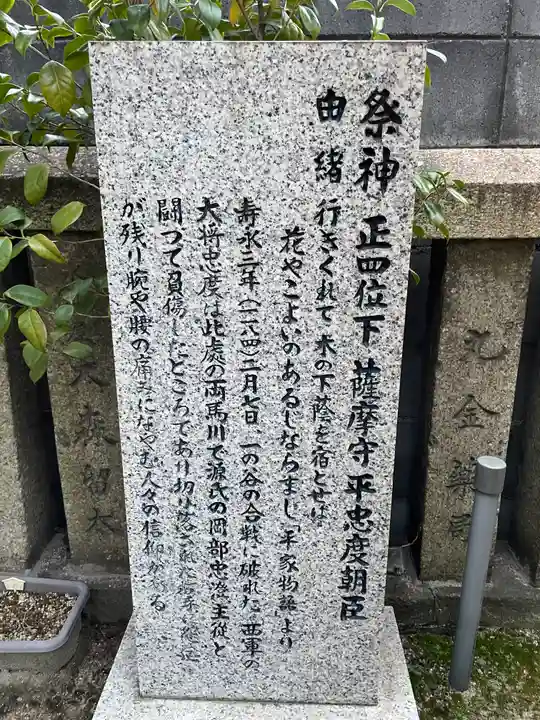 祭神 正四位下 薩摩守平忠度朝臣
由緒 行きくれて 木の下蔭を宿とせば
花やこよいのあるじならまし「平家物語」より
寿永三年(一一八四)二月七日、一の谷の合戦に破れた西軍の
大将忠度は此處の両馬川で源氏の岡部忠澄主従と
闘つて負傷したところであり切り落された
が残り腕や腰の痛みになやむ人々の信仰が
丸金